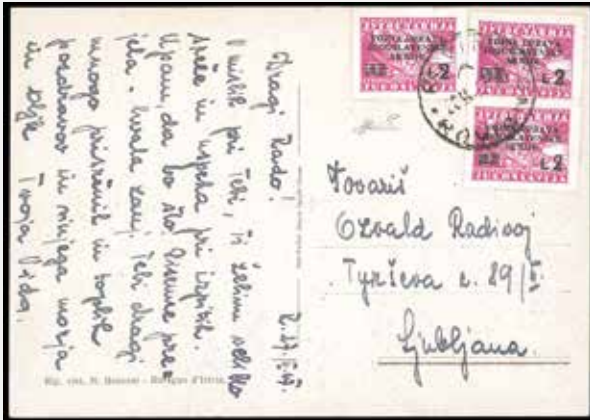 Dragi Rado!
V mislih pri Tebi, Ti želim veliko
sreče in uspeha pri izpitih.
Upam, da bo šlo pre-
jela. Hvala zanj. Tebi dragi
mnogo prisrčnih in toplih
pozdravov in sinjega morja
in Tvoja Vida.
Rip. viet. N. Benussi - Rovigno d'Istria
VOJNA UPRAVA
JUGOSLAVENSKE
ARMIJE
L 2
VOJNA UPRAVA
JUGOSLAVENSKE
ARMIJE
L 2
VOJNA UPRAVA
JUGOSLAVENSKE
ARMIJE
L 2
JUGOSLAVIJA
Tovariš
Ozvald Radivoj
Tyrševa c. 29/III
Ljubljana.